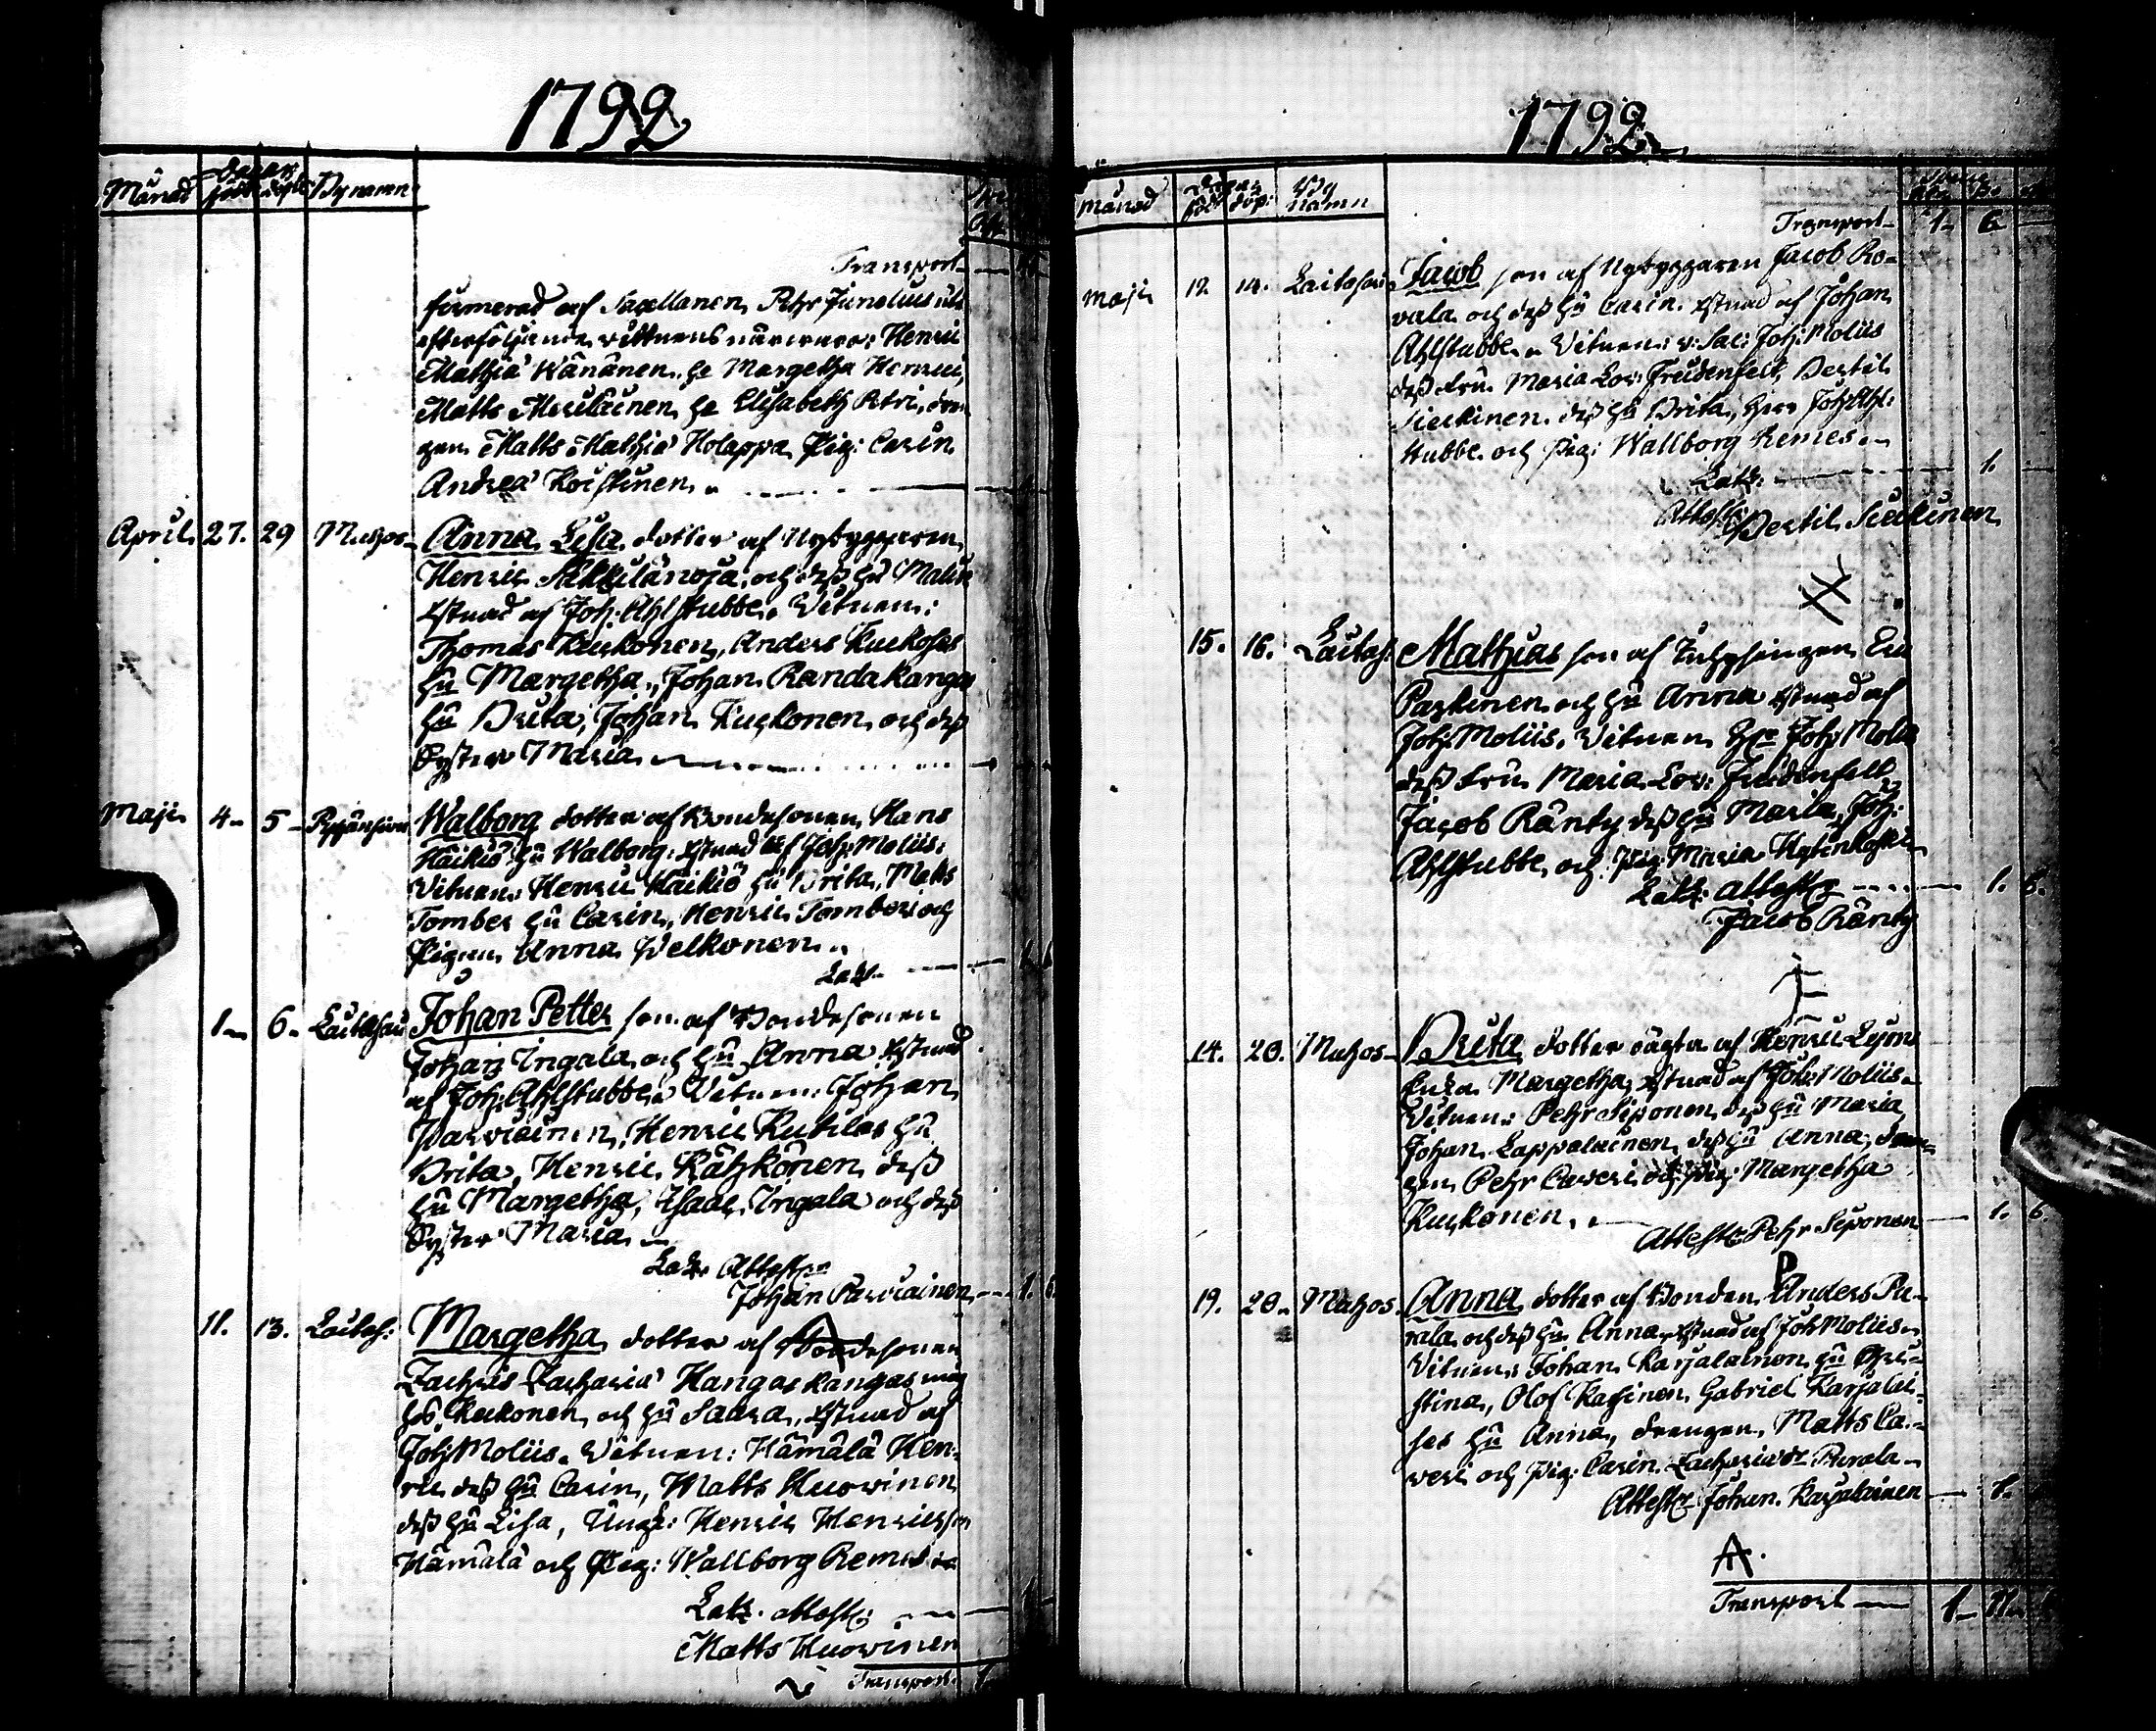 1792
Månad
Dagar
född döpt
By namn
Transport
formerad af Sacellanen Pehr Junelius uti
efterföljande vittnens närvaro: Henric
Mathiæ Wänänen, h. Margetha Henrici,
Matts Meriläinen h. Elisabeth Petri, dren
gen Matts Mathiæ Holappa Pig: Carin
Andreæ Koistinen
April 27. 29 Muhos Anna Lisa dotter af Nybyggaren
Henric och dess hu Malin
Xstnad af Joh: Ahlstubbe. Vitnen:
Thomas Kuckonen, Anders Kuckoses
hu Margetha, Johan Randakangas
hu Brita, Johan Kuckonen och dess
Syster Maria
Maji 4 5 Walborg dotter af Bondesonen Hans
Käikiö hu Walborg: Xstnad af Joh: Molius:
Vitnen Henric Käikiö hu Brita, Matts
Tomber hu Carin, Henric Tomber och
Pigan Anna Pelkonen
1 6 Johan Petter son af Bondesonen
Johan Ingala och hu Anna Xstnad
af Joh: Ahlstubbe. Vitnen: Johan
Parviainen, Henric Kukilas hu
Brita, Henric Rätzkönen dess
hu Margetha, Isaac Ingala och dess
Syster Maria
Attest:
Johan Parviainen
11. 13. Laitas: Margetha dotter af Bondesonen
Zachris Zachariæ Hangaskangas mag
hos Kuckonen och hu Saara, Xstnad af
Joh: Molius. Vitnen: Hämälä Hen-
ric dess hu Carin, Matts Huovinen
dess hu Lisa, Ungk: Henric Henricsson
Hämälä och Pig: Wallborg Remes
attest:
Matts Huovinen
Transport
1792
Månad
Dagar
föd döp:
By
namn
Transport 1 6
Maji 12. 14. Jacob son af Nybyggaren Jacob Ro-
vala och dess hu Carin. Xstnad af Johan
Ahlstubbe. Vitnen: v: Sac: Joh: Molius
dess Fru Maria Lov: Freidenfelt, Bertil
dess hu Brita, Herr Joh: Ahl-
stubbe och Pig: Wallborg Remes
1.
Attest:
Bertil
15. 16. Laitas. Mathias son af Eric
Paskinen och hu Anna Xstnad af
Joh: Molius. Vitnen Hr Joh: Molius
dess Fru Maria Lov: Freidenfelt
Jacob Ränty dess hu Maria, Joh:
Ahlstubbe och Pig: Maria
attest: 1. 6.
Jacob Ränty
14. 20. Muhos Brita dotter oägta af Henric
Margetha, Xstnad af Joh: Molius
Vitnen: Pehr Siponen dess hu Maria,
Johan Lappalainen dess hu Anna, dren-
gen Pehr och Pig: Margetha
Kuckonen 1. 6.
Attest: Pehr Siponen
19. 20. Muhos. Anna dotter af Bonden Anders Pu-
rala och dess hu Anna, Xstnad af Joh: Molius
Vitnen: Johan Karjalainen hu Chri-
stina, Olof Kassinen Gabriel Karjalai-
ses hu Anna, drengen Matts Ca-
veri och Pig: Carin Zachariædr Purala
Attest: Johan Karjalainen 1.
Transport 1 11